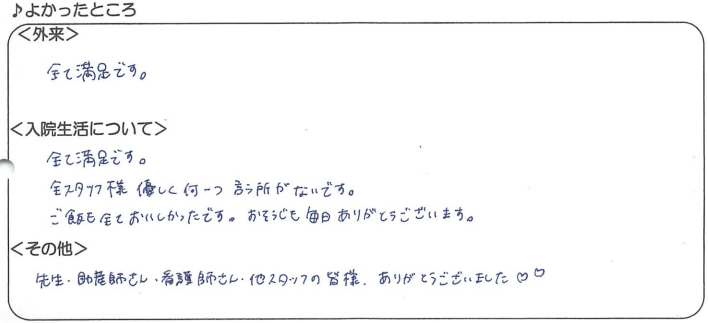 ♪よかったところ
＜外来＞
全て満足です。
＜入院生活について＞
全て満足です。
全スタッフ様 優しく何一つ言う所がないです。
ご飯も全ておいしかったです。おそうじも毎日ありがとうございます。
＜その他＞
先生・助産師さん・看護師さん・他スタッフの皆様、ありがとうございました♡♡